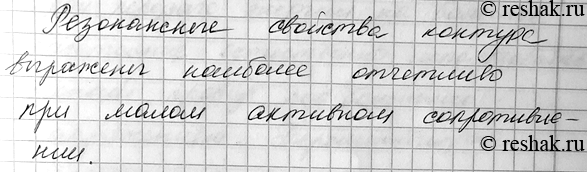 © reshak.ru
Резонансные свойства контура
выражены наиболее отчетливо
при малом активном сопротивле-
нии.
© reshak.ru